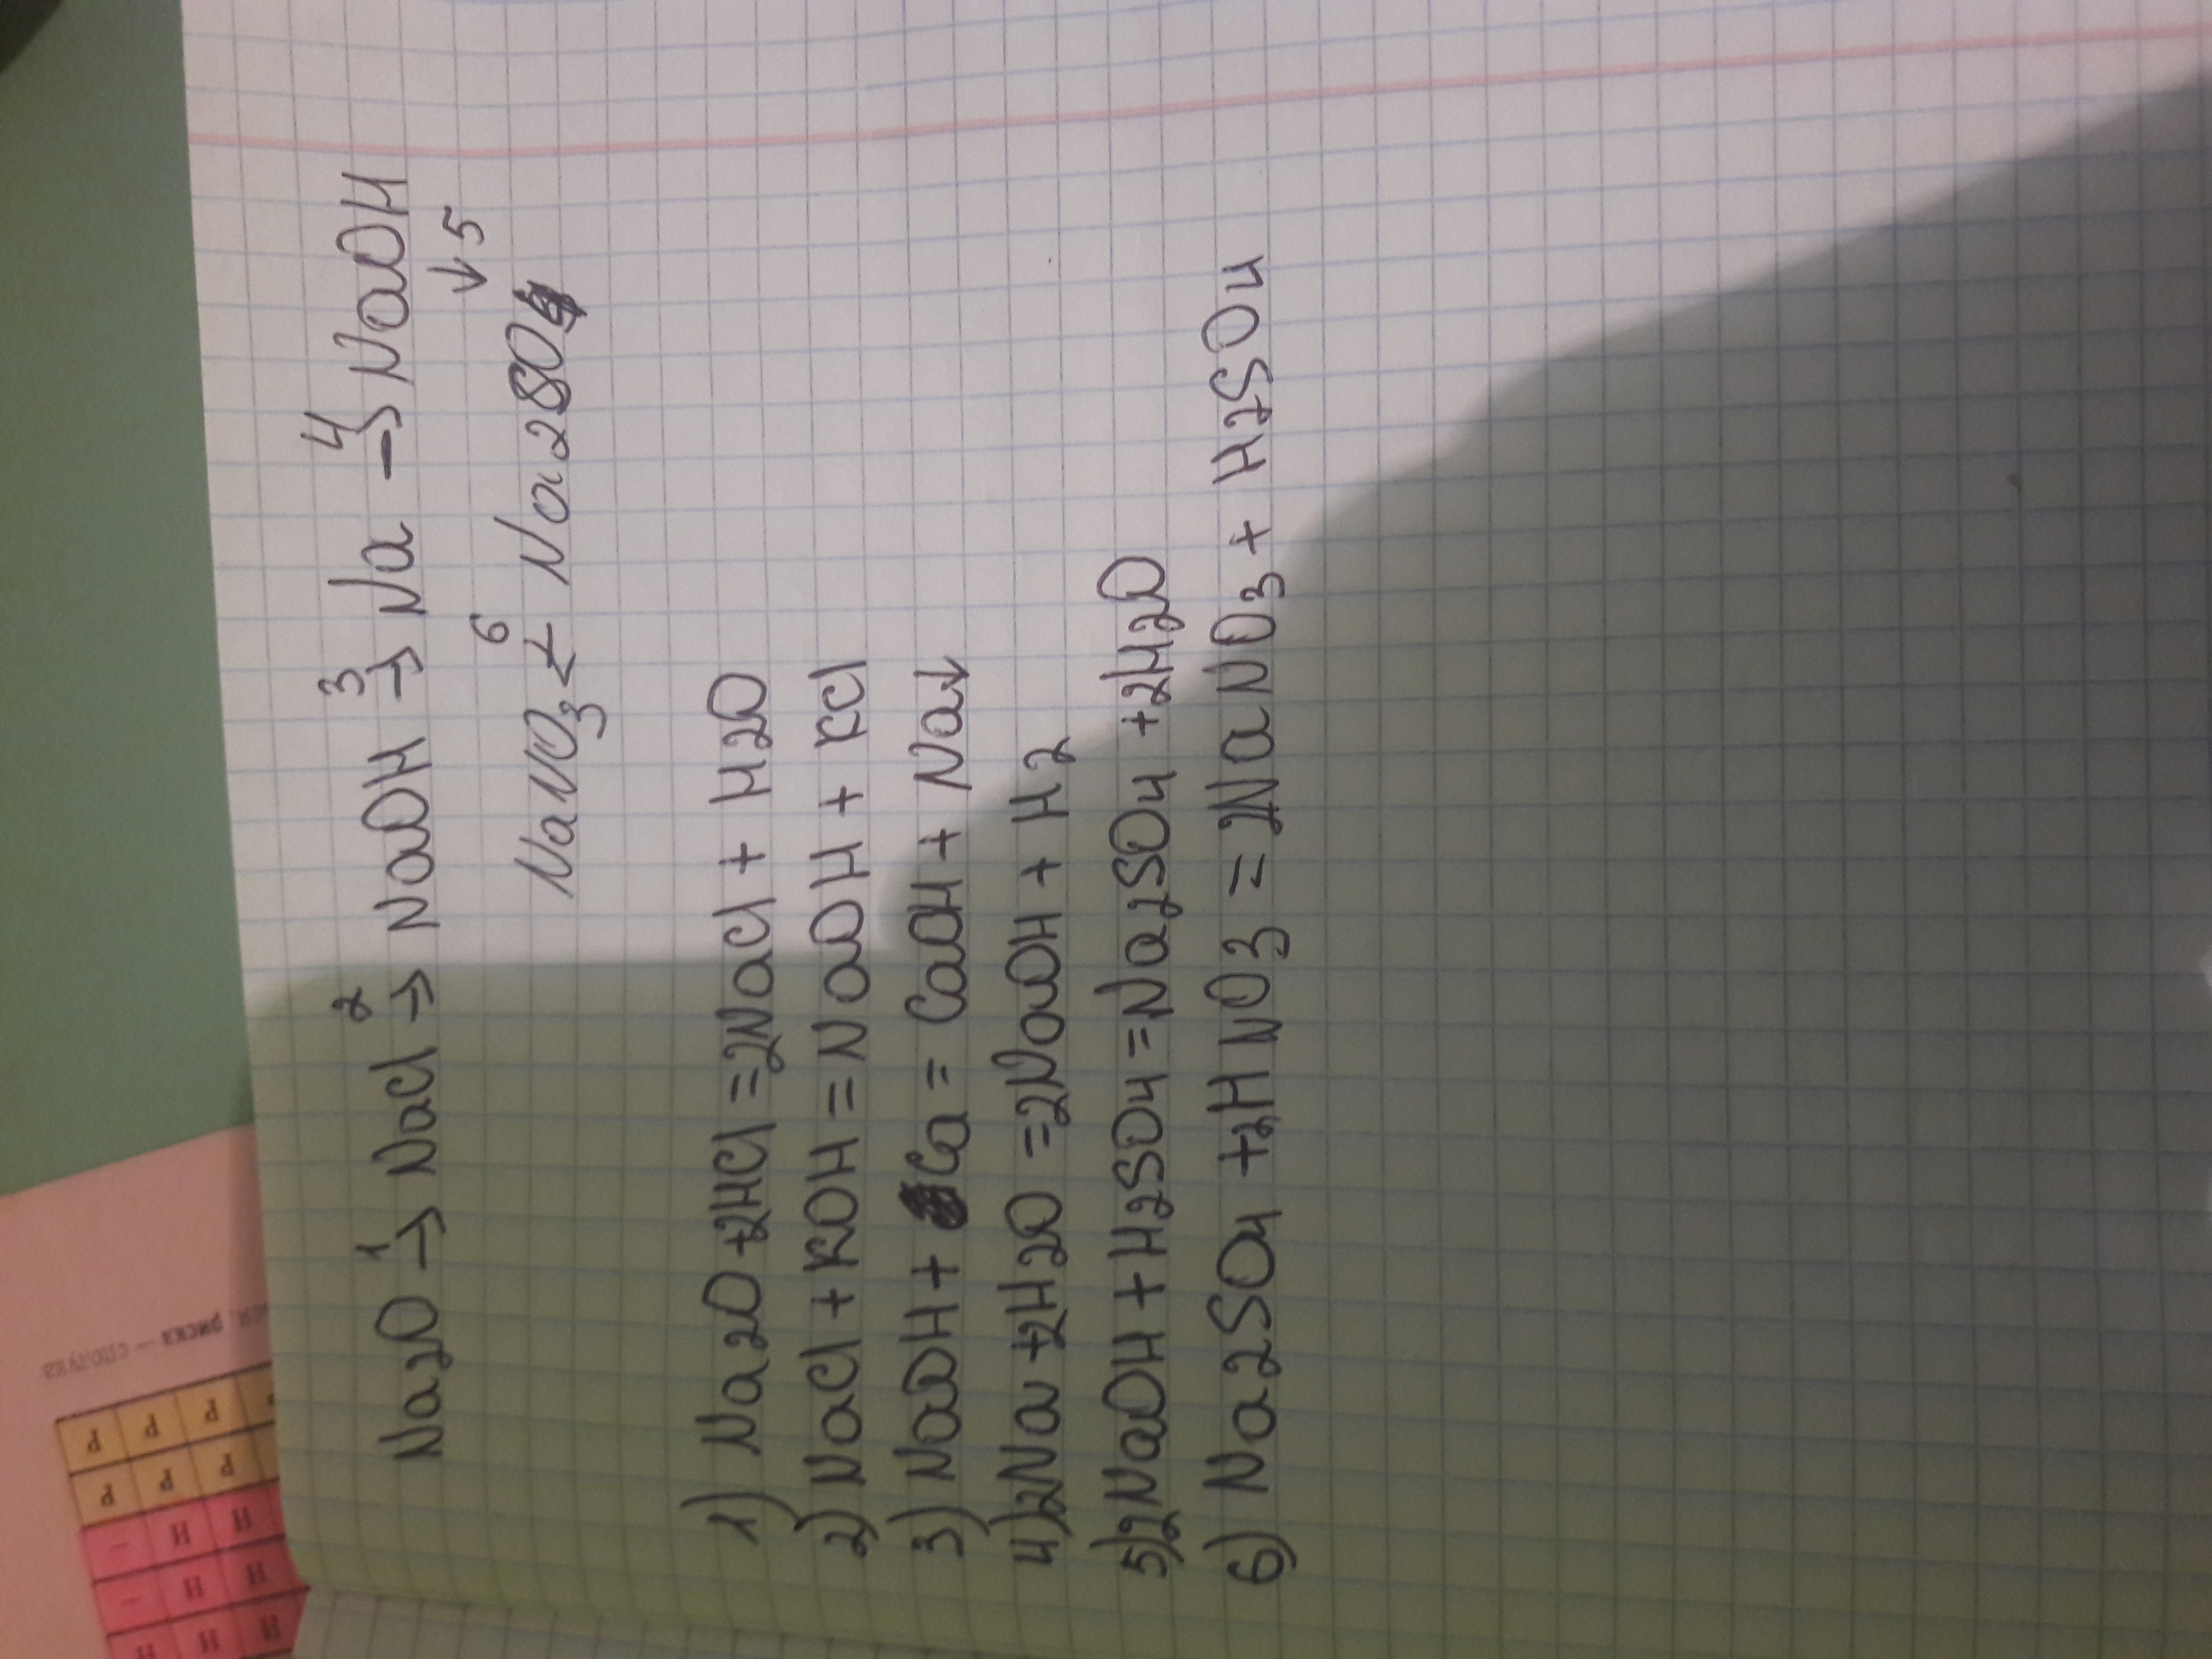 Na2O →1 NaCl →2 NaOH →3 Na →4 NaOH
↓5
NaNO3 ←6 Na2SO4
1) Na2O+2HCl=2NaCl + H2O
2) NaCl + KOH = NaOH + KCl
3) NaOH + Ca = CaOH + Na↓
4) 2Na+2H2O =2NaOH + H2
5) 2NaOH + H2SO4=Na2SO4 +2H2O
6) Na2SO4 +2HNO3 =2NaNO3 + H2SO4
риска — сполука
P P P
P P P
– H H
– H H
H H H